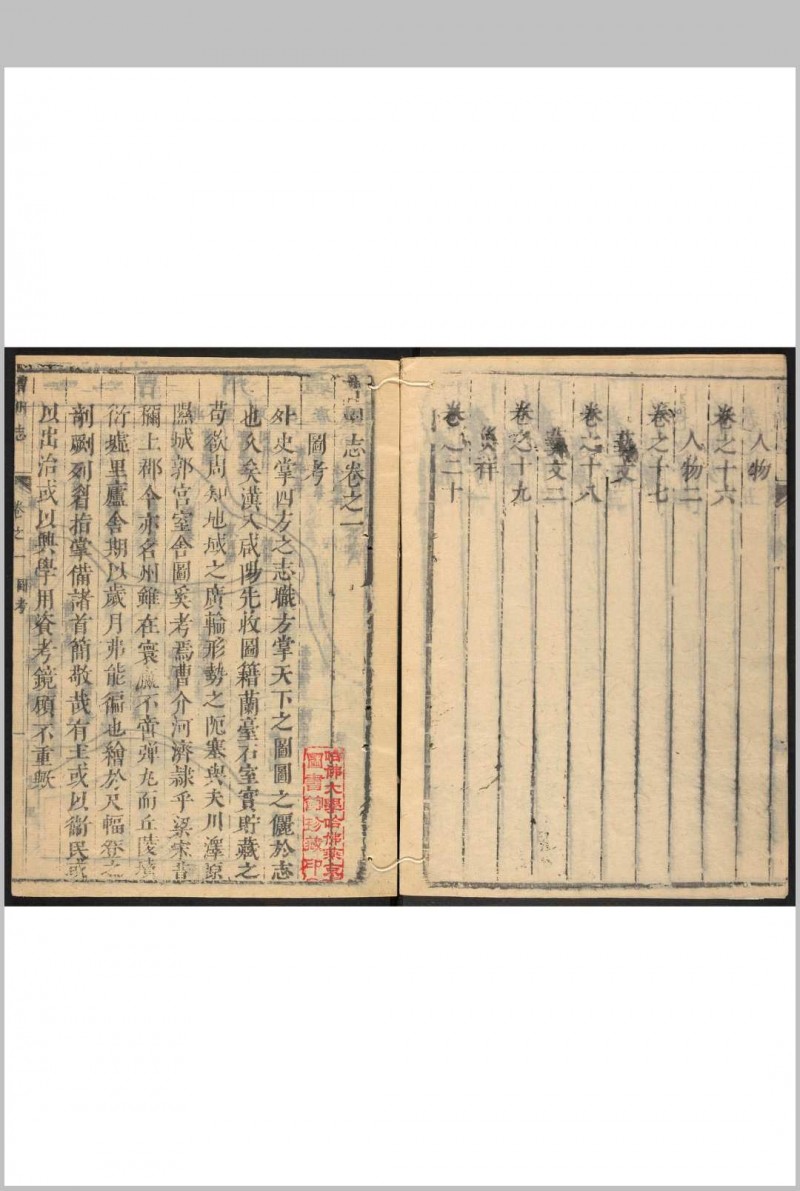 人物
卷之十六
人物二
卷之十七
藝文
卷之十八
藝文二
卷之十九
災祥
卷之二十
曹州志卷之一
圖考
外史掌四方之志職方掌天下之圖圖之儷於志
也久矣漢入咸陽先收圖籍蘭臺石室實貯藏之
苟欲周知地域之廣輪形勢之阨塞與夫川澤原
隰城郭宮室舍圖奚考焉曹介河濟隸乎梁宋昔
稱上郡今亦名州雖在寰瀛不啻彈丸而丘陵墳
衍墟里廬舍期以歲月弗能徧也繪於尺幅登之
剞劂列眉指掌備諸首簡敬哉有土或以衞民或
以出治或以興學用資考鏡顧不重歟
州志
卷之一
圖考
哈佛大學哈佛燕京
圖書館珍藏印